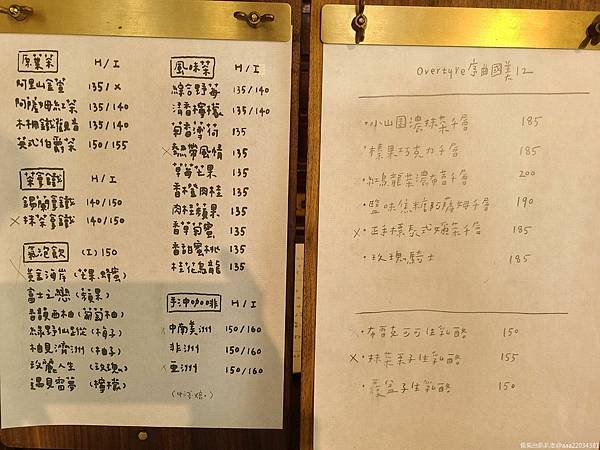 原葉茶 H/I
阿里山金萱 135/x
阿薩姆紅茶 135/140
木柵鐵觀音 135/140
英式伯爵茶 150/155
茶拿鐵 H/I
錫蘭拿鐵 140/150
x 抹茶拿鐵 140/150
氣泡飲 (I) 150
黃金海岸 (芒果蜂蜜)
富士之戀 (蘋果)
香韻西柚 (葡萄柚)
綠野仙蹤 (梅子)
相見濟洲 (柚子)
玫麗人生 (玫瑰)
遇見雷夢 (檸檬)
風味茶 H/I
綜合野莓 135/140
清香檸檬 135/140
菊香薄荷 135
x 熱帶風情 135
草莓芒果 135
香橙肉桂 135
肉桂蘋果 135
香草菊蜜 135
香甜蜜桃 135
桂花烏龍 135
手沖咖啡 H/I
中南美洲 150/160
非洲 150/160
亞洲 150/160
(中深焙。)
Overture 序曲國美12
·小山園濃抹茶千層 185
·榛果巧克力千層 185
·紅烏龍茶濃布蕾千層 200
·鹽味焦糖阿薩姆千層 190
x ·正手標泰式奶茶千層 185
·玫瑰騎士 185
·布雷克可可生乳酪 150
x ·抹茶栗子生乳酪 155
·覆盆子生乳酪 150